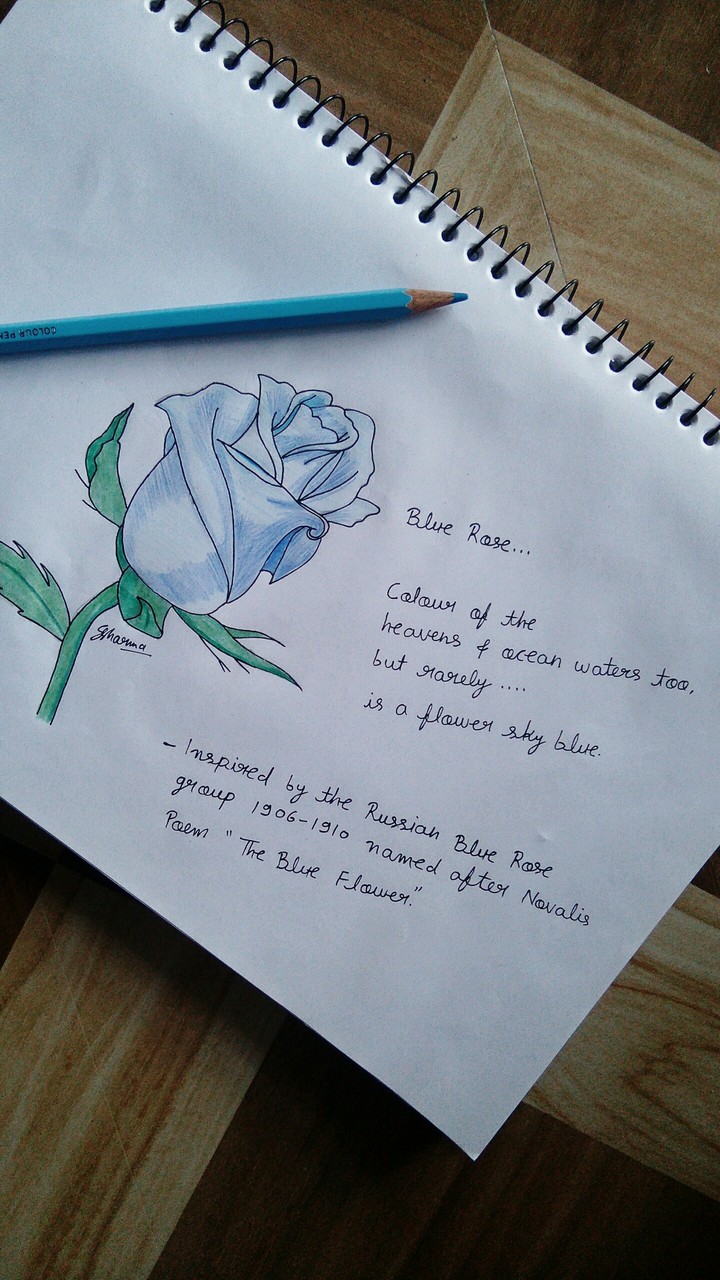 COLOUR PEN
Blue Rose...
Colour of the
heavens & ocean waters too,
but rarely ....
is a flower sky blue.
GSharma
- Inspired by the Russian Blue Rose
group 1906-1910 named after Novalis
Poem "The Blue Flower."